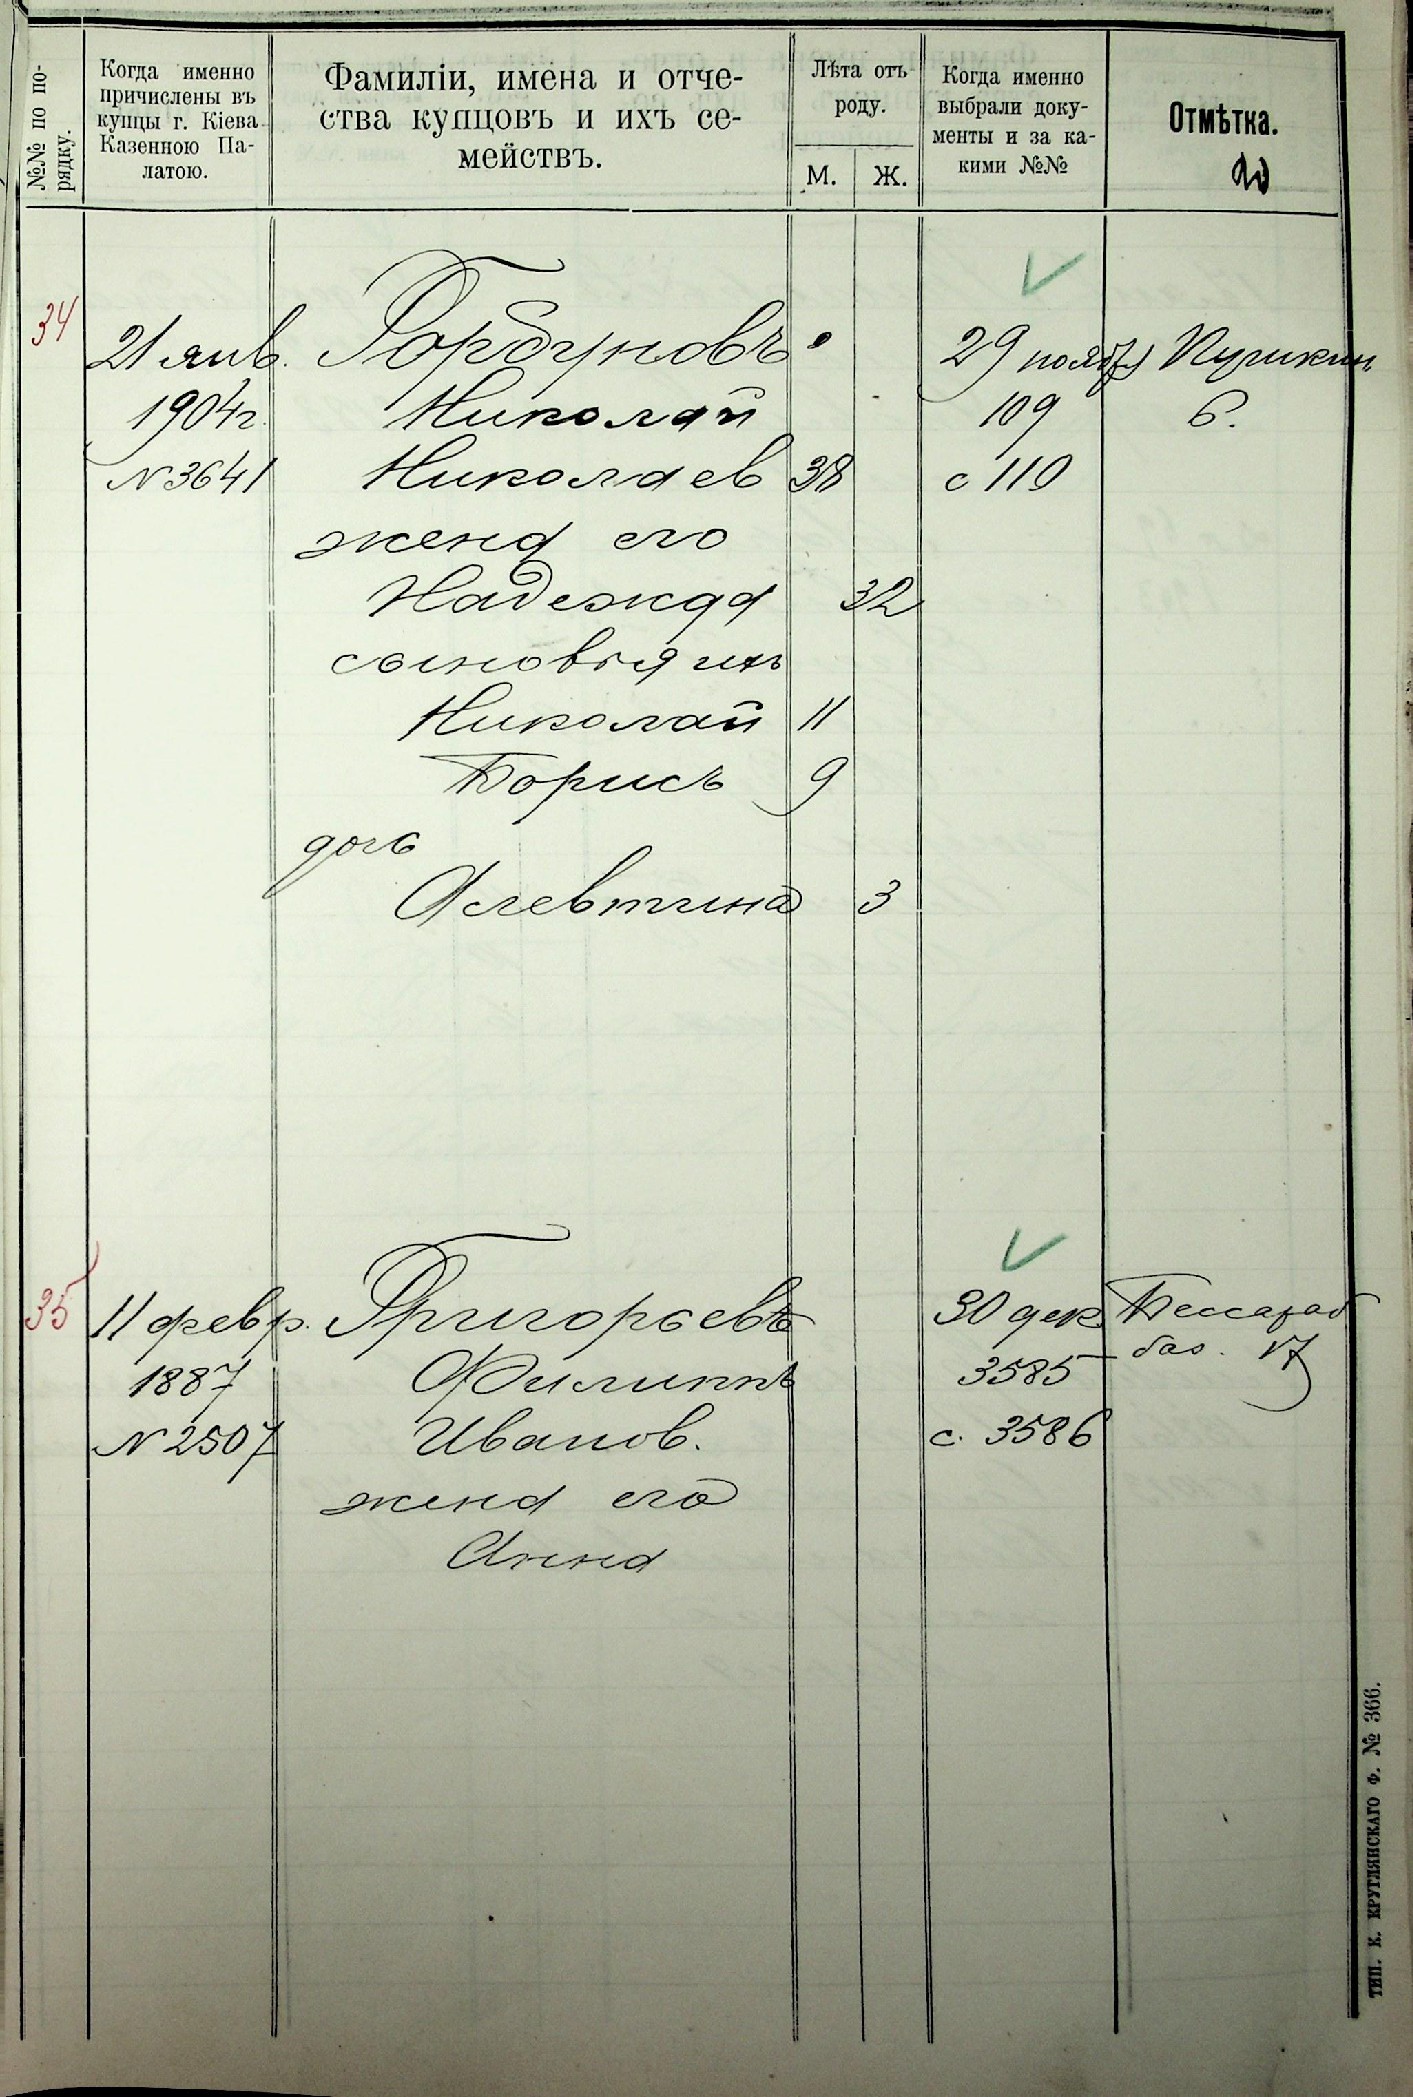 №№ по по-
рядку.
Когда именно
причислены въ
купцы г. Кіева
Казенною Па-
латою.
Фамиліи, имена и отче-
ства купцовъ и ихъ се-
мействъ.
Лѣта отъ
роду.
М. Ж.
Когда именно
выбрали доку-
менты и за ка-
кими №№
Отмѣтка.
34 21 янв. Горбуновъ 29 ноября Пушкин
1904 г. Николай 109 6.
N 3641 Николаев 38 с 110
жена его
Надежда 32
сыновья ихъ
Николай 11
Борисъ 9
дочь
Алевтина 3
35 11 февр. Григорьевъ 30 дек Бессараб
1887 Филиппъ 3585 баз. 17
N 2507 Иванов. с. 3586
жена его
Анна
ТИП. К. КРУГЛЯНСКАГО Ф. № 366.